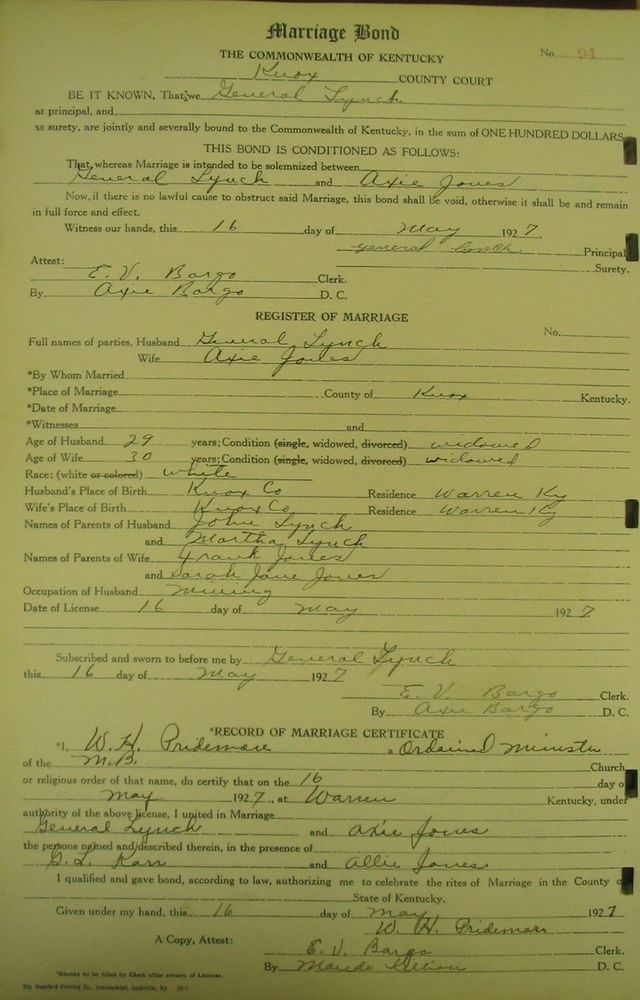 Marriage Bond
No. 94
THE COMMONWEALTH OF KENTUCKY
Knox COUNTY COURT
BE IT KNOWN, That we General Lynch
as principal, and
as surety, are jointly and severally bound to the Commonwealth of Kentucky, in the sum of ONE HUNDRED DOLLARS
THIS BOND IS CONDITIONED AS FOLLOWS:
That, whereas Marriage is intended to be solemnized between
General Lynch and Axie Jones
Now, if there is no lawful cause to obstruct said Marriage, this bond shall be void, otherwise it shall be and remain
in full force and effect.
Witness our hands, this 16 day of May 1927
General Principal
Surety.
Attest:
E. V. Bargo Clerk.
By Axie Bargo D. C.
REGISTER OF MARRIAGE
No.
Full names of parties, Husband General Lynch
Wife Axie Jones
*By Whom Married
*Place of Marriage County of Knox Kentucky.
*Date of Marriage
*Witnesses and
Age of Husband 29 years; Condition (single, widowed, divorced) widowed
Age of Wife 30 years; Condition (single, widowed, divorced) widowed
Race: (white or colored) white
Husband's Place of Birth Knox Co Residence Warren Ky
Wife's Place of Birth Knox Co Residence Warren Ky
Names of Parents of Husband John Lynch
and Martha Lynch
Names of Parents of Wife Frank Jones
and Sarah Jane Jones
Occupation of Husband Mining
Date of License 16 day of May 1927
Subscribed and sworn to before me by General Lynch
this 16 day of May 1927
E. V. Bargo Clerk.
By Axie Bargo D. C.
*RECORD OF MARRIAGE CERTIFICATE
*I, W. H. Pridemore a Ordained Minister
of the M.B. Church
or religious order of that name, do certify that on the 16 day o
May 1927, at Warren Kentucky, under
authority of the above license, I united in Marriage
General Lynch and Axie Jones
the persons named and described therein, in the presence of
Karr and Allie Jones
I qualified and gave bond, according to law, authorizing me to celebrate the rites of Marriage in the County o
State of Kentucky.
Given under my hand, this 16 day of May 1927
W. H. Pridemore
A Copy, Attest:
E. V. Bargo Clerk.
By Maude D. C.
*Blanks to be filled by Clerk after return of License.
The Standard Printing Co., Incorporated, Louisville, Ky